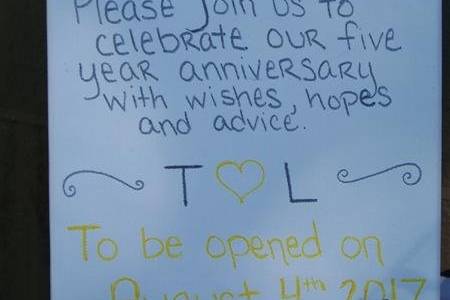 Please Join us to
celebrate our five
year anniversary
with wishes, hopes
and advice.
T ♡ L
To be opened on
August 4th 2017